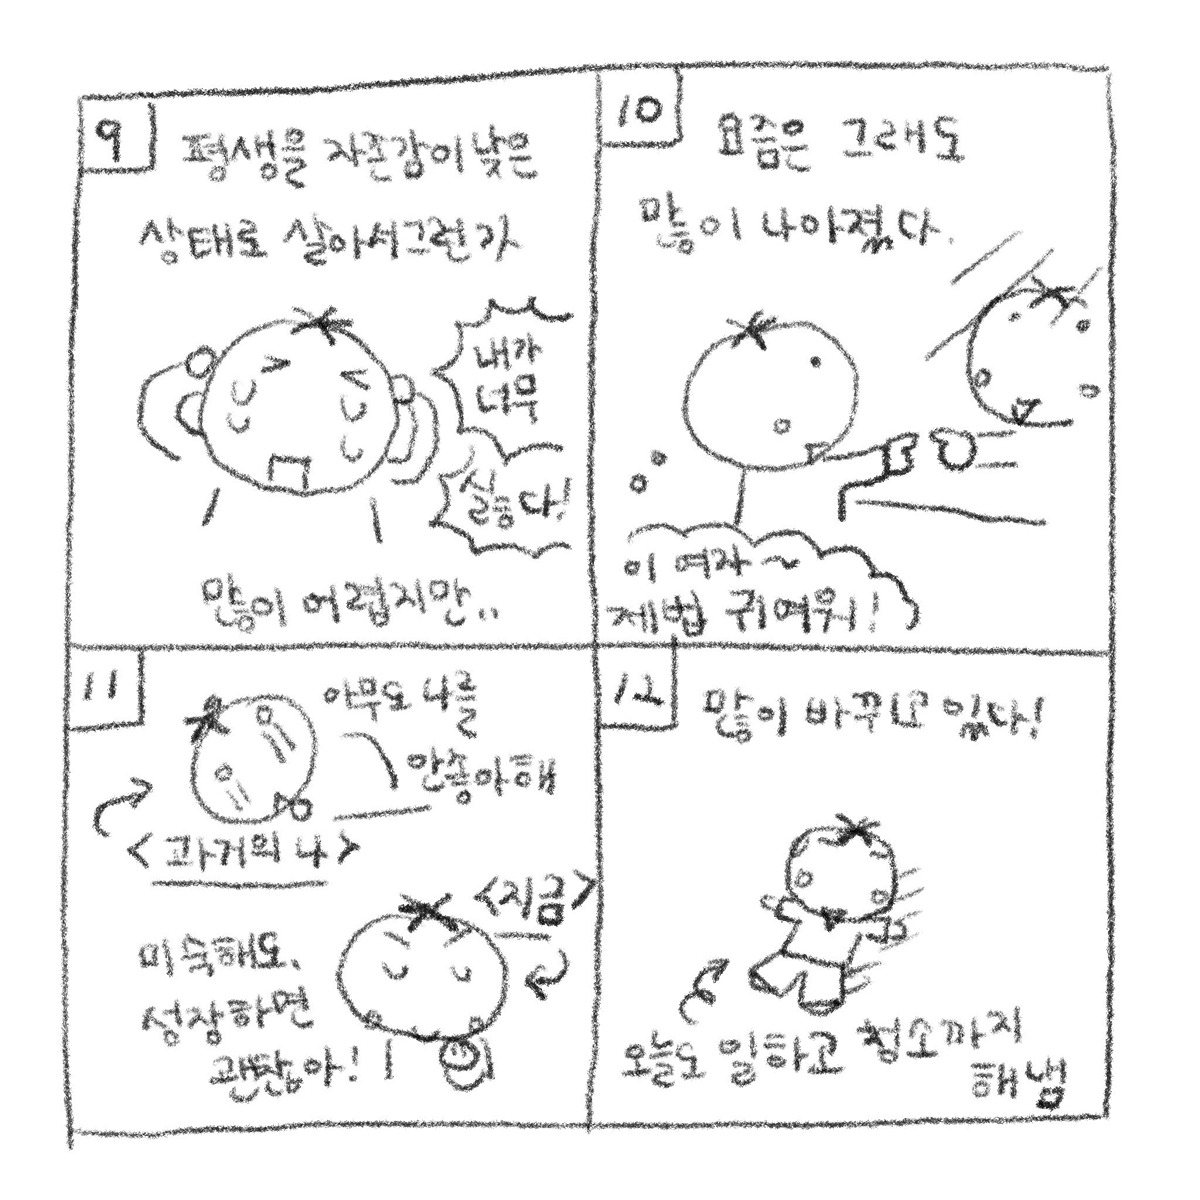 9
평생을 자존감이 낮은
상태로 살아서그런가
내가
너무
싫다!
많이 어렵지만..
10
요즘은 그래도
많이 나아졌다.
이 여자~
제법 귀여워!
11
아무도 나를
안좋아해
<과거의 나>
<지금>
미숙해도,
성장하면
괜탆아!
12
많이 바뀌고 있다!
오늘도 일하고 청소까지
해냄